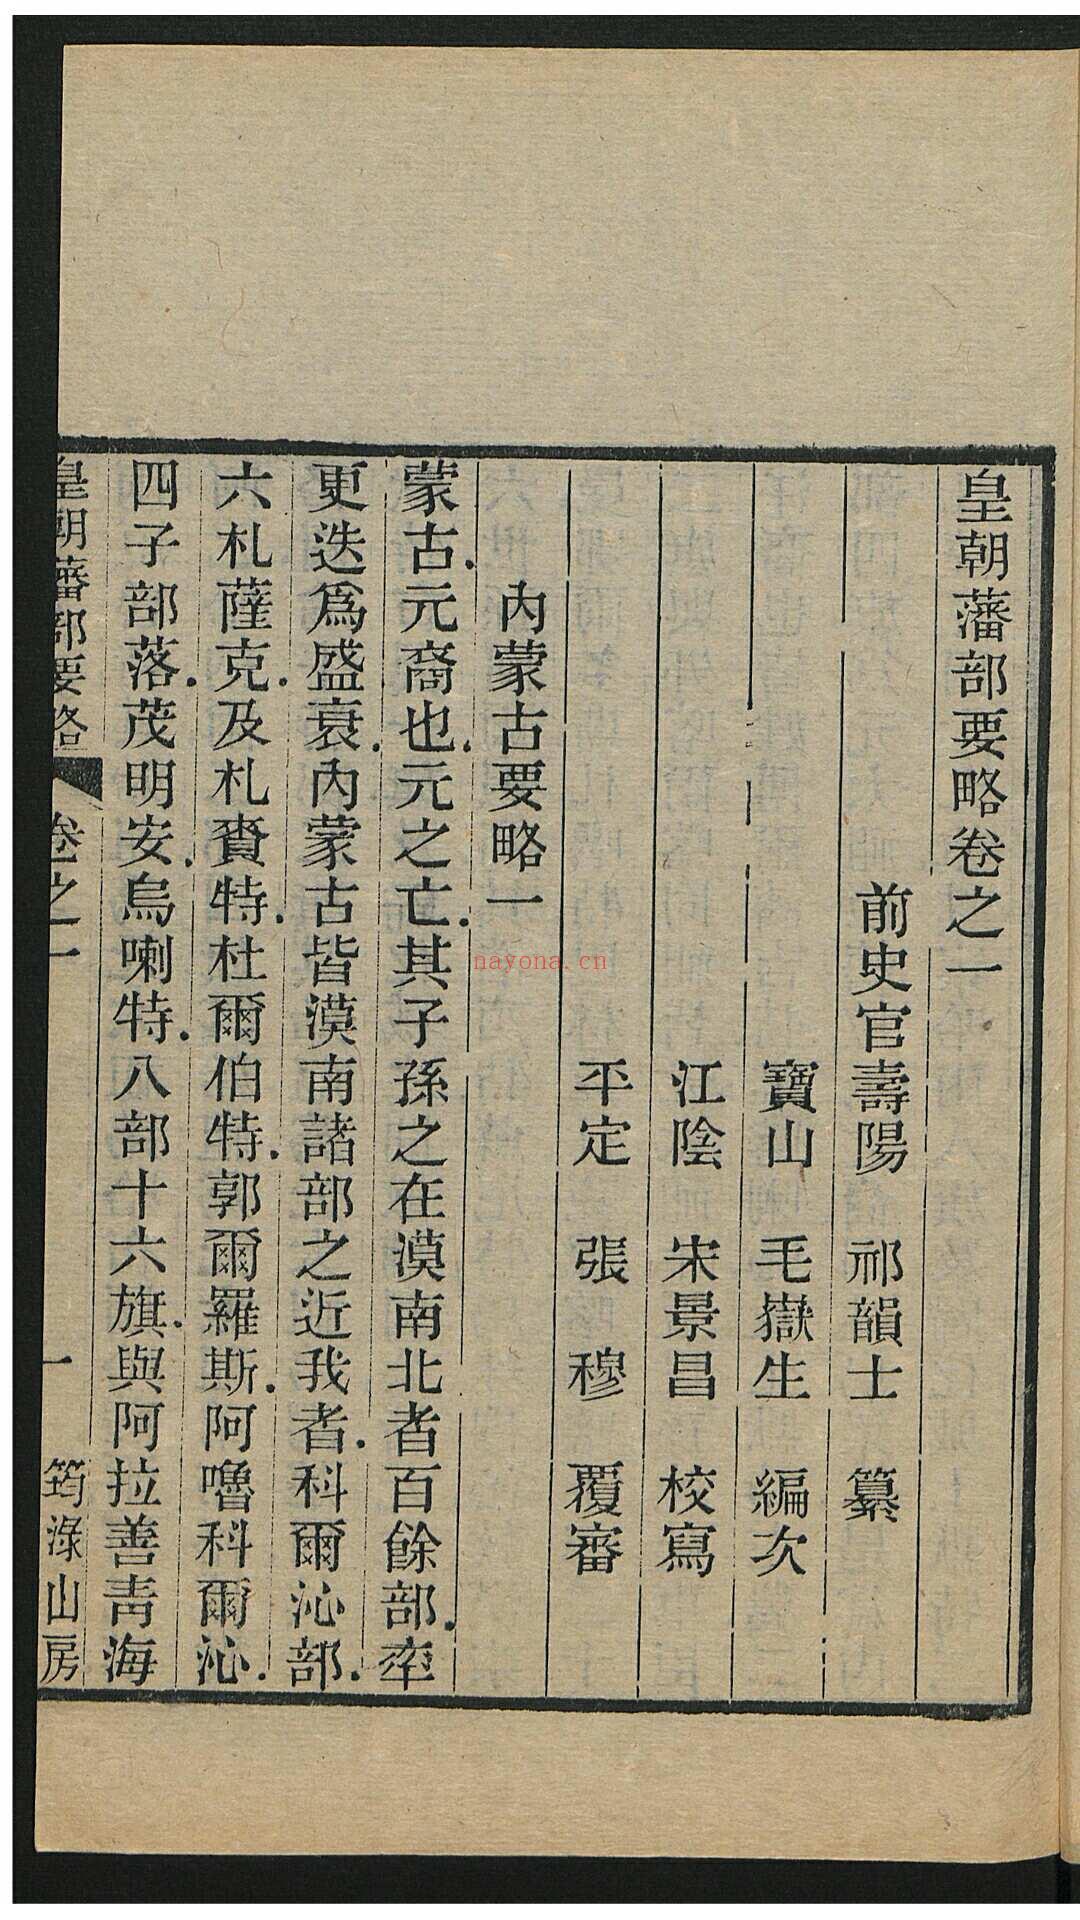 皇朝藩部要略卷之一
前史官壽陽 祁韻士 纂
寶山 毛嶽生 編次
江陰 宋景昌 校寫
平定 張穆 覆審
內蒙古要略一
蒙古.元裔也.元之亡.其子孫之在漠南北者百餘部.率
更迭爲盛衰.內蒙古皆漠南諸部之近我者.科爾沁部.
六札薩克.及札賚特.杜爾伯特.郭爾羅斯.阿嚕科爾沁.
四子部落.茂明安.烏喇特.八部十六旗.與阿拉善靑海
皇朝藩部要略 卷之一 一 筠淥山房
nayona.cn